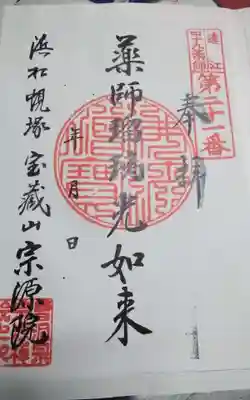 遠江
四十九薬師
第二十一番
奉拝
藥師瑠璃光如来
年月日
浜松蜆塚 宝蔵山 宗源院